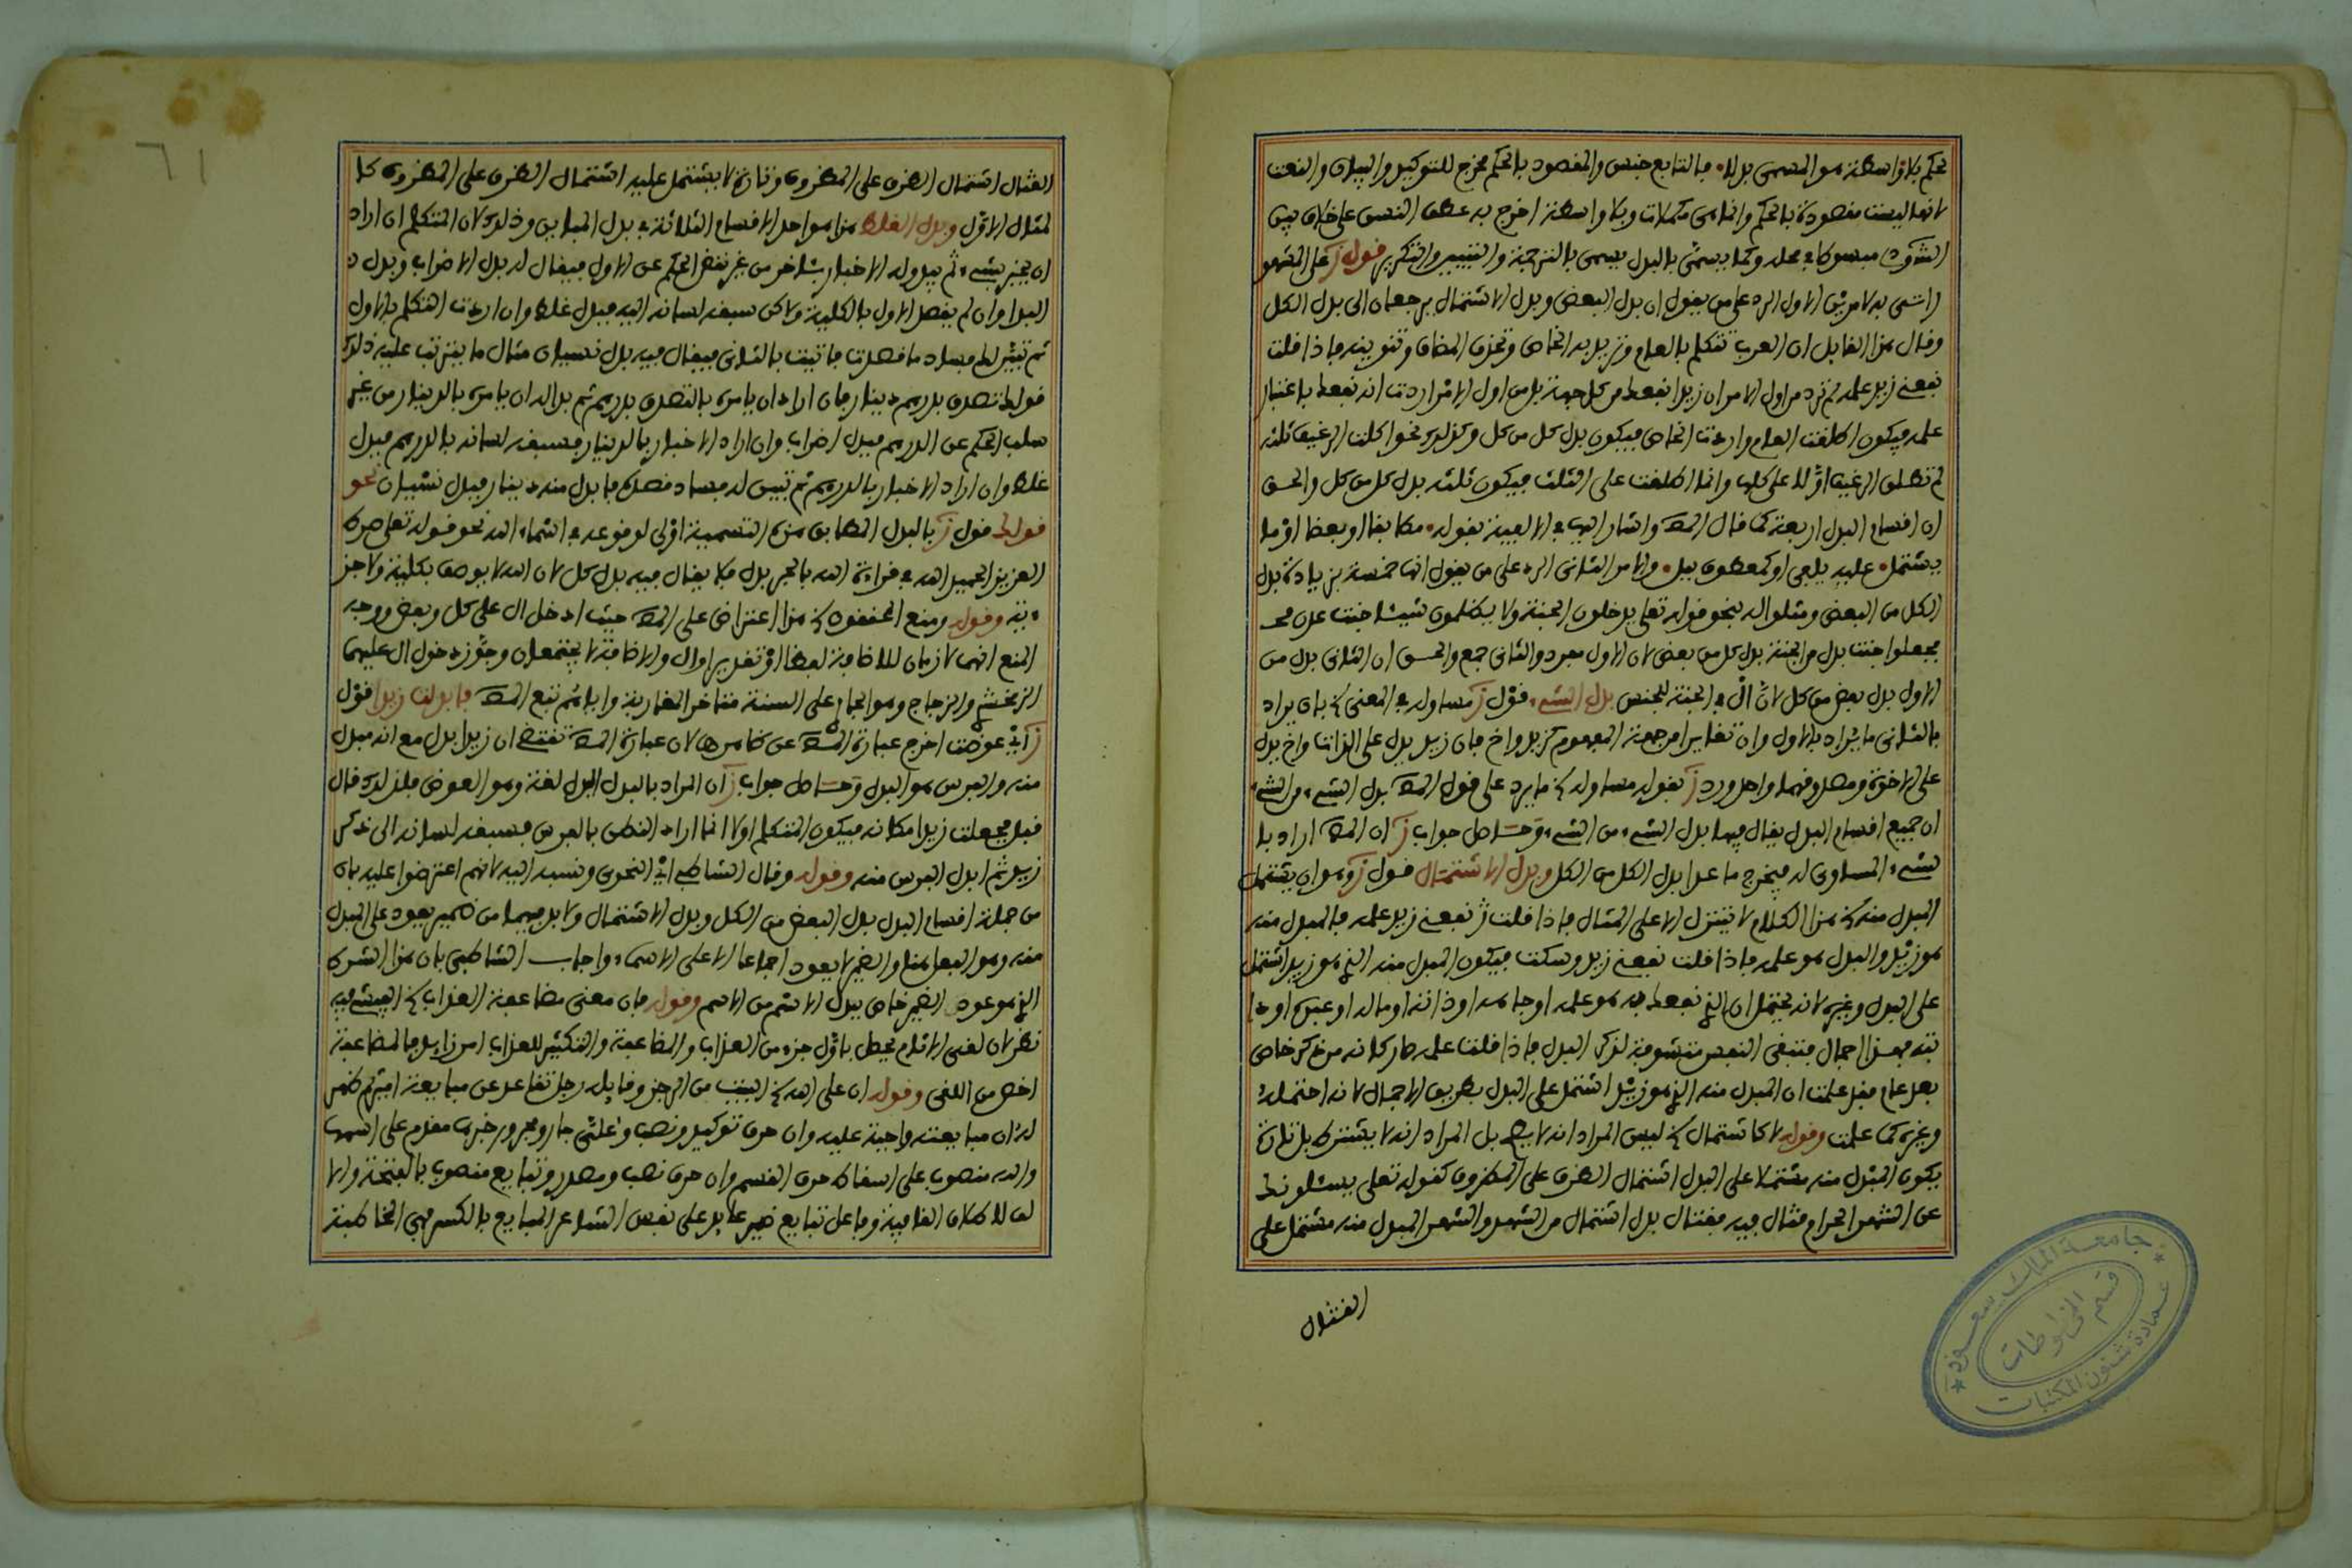 بحكم بلا واسطة هو المسمى بدلا. فالتابع جنس والمقصود بالحكم مخرج للتوكيد والبيان والنعت
لانها ليست مقصودة بالحكم وانما هي مكملات وبلا واسطة اخرج به عطف النسق على خلاف بين
مبسوط في محله وكما يسمى بالبدل يسمى بالترجمة والتبيين والتكرير قوله ز على المشهور
لامرين الاول الرد على من يقول ان بدل البعض وبدل الاشتمال يرجعان الى بدل الكل
وقال هذا القايل ان العرب تتكلم بالعام وتريد به الخاص وتحذف المضاف وتنويه فاذا قلت
نفعني زيد علمه لم ترد من اول الامر ان زيدا نفعك من كل جهة بل من اول الامر اردت انه نفعك باعتبار
علمه فيكون اطلقت العام واردت الخاص فيكون بدل كل من كل وكذلك نحو اكلت الرغيف ثلثه
لم تطلق الرغيف اولا على كله وانما اطلقت على الثلث فيكون ثلثه بدل كل من كل والحق
ان اقسام البدل اربعة كما قال المص واشار اليها في الالفية بقوله. مطابقا او بعضا او ما
يشتمل. عليه يلفى او كمعطوف ببل. والامر الثاني الرد على من يقول انها خمسة بزيادة بدل
الكل من البعض ومثلوا له بنحو قوله تعلى يدخلون الجنة ولا يظلمون شيئا جنت عدن
فجعلوا جنت بدل من الجنة بدل كل من بعض لان الاول مفرد والثاني جمع والحق ان الثاني بدل من
الاول بدل بعض من كل لان ال في الجنة للجنس بدل الشيء قول ز مساو له في المعنى بان يراد
بالثاني ما يراد بالاول وان تغايرا من جهة المفهوم كزيد واخ فان زيد يدل على الذات واخ يدل
على الاخوة ومصدوقهما واحد ورد ز بقوله مساو له ما يرد على قول المص بدل الشيء من الشيء
ان جميع اقسام البدل يقال فيها بدل الشيء من الشيء وحاصل جواب ز ان المص اراد با
لشيء المساوي له فيخرج ما عدا بدل الكل من الكل وبدل الاشتمال قول ز وهو ان يشتمل
المبدل منه هذا الكلام لا يتنزل الا على المثال فاذا قلت نفعني زيد علمه فالمبدل منه
هو زيد والبدل هو علمه فاذا قلت نفعني زيد وسكت فيكون المبدل منه الذي هو زيد اشتمل
على البدل وغيره لانه يحتمل ان الذي نفعك به هو علمه او جاهه او ذاته او ماله او عبده او دا
بته فهذا اجمال فتبقى النفس متشوفة لذكر البدل فاذا قلت علمه صار كانه من ذكر خاص
بعد عام فقد علمت ان المبدل منه الذي هو زيد اشتمل على البدل بطريق الاجمال لانه احتمله
وغيره كما علمت وقوله لا كاشتمال ليس المراد انه لا يصح بل المراد انه لا يشترط بل تارة
يكون المبدل منه مشتملا على البدل اشتمال الظرف على المظروف كقوله تعلى يسئلونك
عن الشهر الحرام قتال فيه فقتال بدل اشتمال من الشهر والشهر المبدل منه مشتمل على
القتال
القتال اشتمال الظرف على المظروف وتارة لا يشتمل عليه اشتمال الظرف على المظروف كا
لمثال الاول وبدل الغلط هذا هو احد الاقسام الثلاثة في بدل المباين وذلك لان المتكلم ان اراد
ان يخبر بشيء ثم يبدو له الاخبار بشيء اخر من غير نقض الحكم عن الاول فيقال له بدل الاضراب وبدل
البدا وان لم يقصد الاول بالكلية ولاكن سبقه لسانه اليه فبدل غلط وان اردت التكلم بالاول
ثم تبين لك فساد ما قصدت فاتيت بالثاني فيقال فيه بدل نسيان مثال ما يترتب عليه ذلك
قولك تصدق بدرهم دينار فان اراد ان يامره بالتصدق بدرهم ثم بدا له ان يامره بالدينار من غير
سلب الحكم عن الدرهم فبدل اضراب وان اراد الاخبار بالدينار فسبقه لسانه بالدرهم فبدل
غلط وان اراد الاخبار بالدرهم ثم تبين له فساد قصده فابدل منه دينار فبدل نسيان نحو
قولك قول ز بالبدل المطابق هذه التسمية اولى لوقوعه في اسماء الله نحو قوله تعلى صراط
العزيز الحميد الله في قراءة الله بالجر بدل فلا يقال فيه بدل كل لان الله لا يوصف بكلية ولا جز
ءية وقوله ومنع المحققون هذا اعتراض على المص حيث ادخل ال على كل وبعض ووجه
المنع انهما لازمان للاضافة لفظا او تقديرا وال والاضافة لا يجتمعان وجوز دخول ال عليهما
الزمخشري والزجاج وهو الجار على السنة متاخر المغاربة واياهم تبع المص فابدلت زيدا قول
ز اي عوضت اخرج عبارة المص عن ظاهرها لان عبارة المص تقتضي ان زيدا بدل مع انه مبدل
منه والفرس هو البدل وحاصل جواب ز ان المراد بالبدل البدل لغة وهو العوض فلذلك قال
قبل فجعلت زيدا مكانه فيكون المتكلم اولا انما اراد النطق بالفرس فسبقه لسانه الى ذكر
زيد ثم ابدل الفرس منه وقوله وقال الشاطبي اي النحوي ونسبه اليه لانهم اعترضوا عليه بان
من جملة اقسام البدل بدل البعض من الكل وبدل الاشتمال ولا بد فيهما من ضمير يعود على المبدل
منه وهو الفعل هنا والضمير لا يعود اجماعا الا على الاسماء واجاب الشاطبي بان هذا الشرط
الذي هو عود الضمير خاص ببدل الاسم من الاسم وقوله فان معنى مضاعفة العذاب
نظر لان لقي الاثام يحصل باول جزء من العذاب والمضاعفة والتكثير للعذاب امر زايد فالمضاعفة
اخص من اللقى وقوله ان علي الله البيت من الرجز وقايله رجل تقاعد عن مبايعة
ان مبايعته واجبة عليه وان حرف توكيد ونصب وعلي جار ومجرور خبرها مقدم على اسمها
والله منصوب على اسقاط حرف القسم وان حرف نصب ومصدر وتبايع منصوب بالفتحة والا
لف للاطلاق القافية وفاعل تبايع ضمير عايد على نفس الشاعر المبايع بالكسر فهي المخاطبة
٦١
جامعة الملك سعود
عمادة شئون المكتبات
قسم المخطوطات